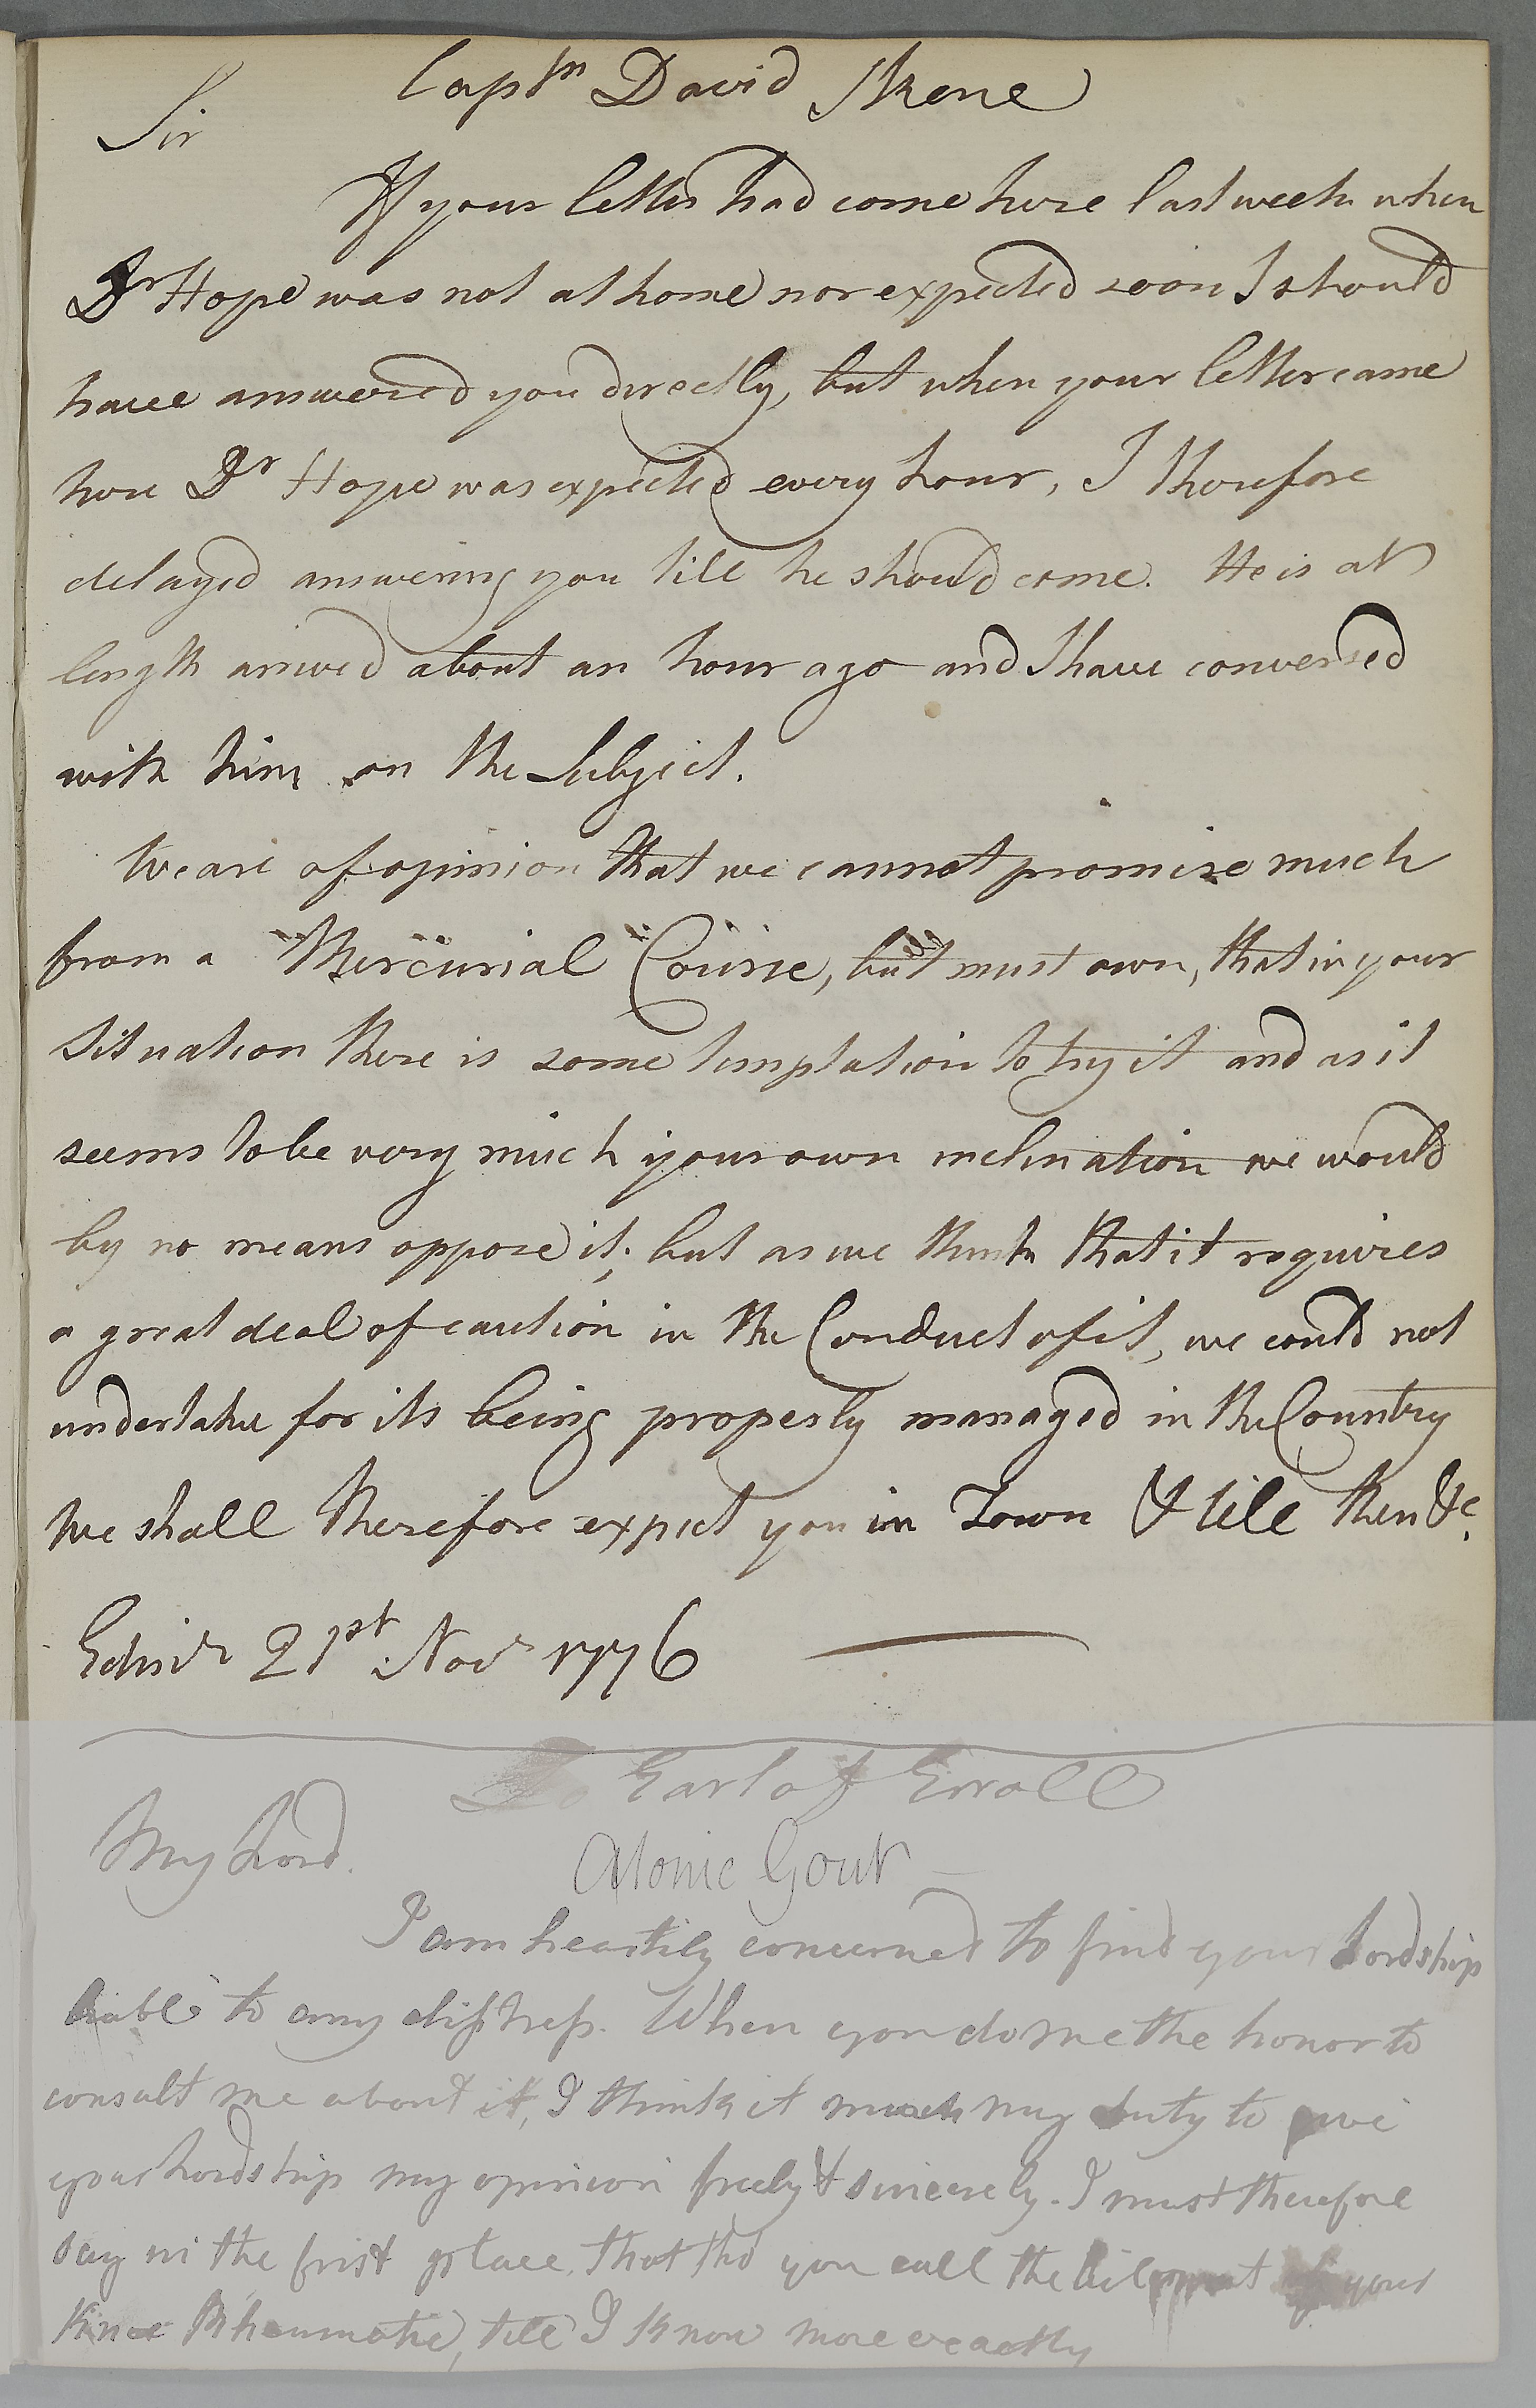 Captn David Skene
Sir
If your letter had come here last week when
Dr Hope was not at home nor expected soon I should
have answered you directly, but when your letter came
here Dr Hope was expected every hour, I therefore
delayed answering you till he should come. He is at
length arrived about an hour ago and I have conversed
with him on the Subject.
We are of opinion that we cannot promise much
from a Mercurial Course, but must own, that in your
Situation there is some temptation to try it and as it
seems to be very much your own inclination we would
by no means oppose it; but as we think that it requires
a great deal of caution in the Conduct of it, we could not
undertake for its being properly managed in the Country
We shall therefore expect you in Town & till then &c.
Edinr 21st Novr 1776
Earl of Erroll
My Lord.
Atonic Gout
I am heartily concerned to find your Lordship
liable to any distress. When you do me the honor to
consult me about it, I think it much my duty to give
your Lordship my opinion freely & sincerely. I must therefore
say in the first place, that tho you call the ailment of your
Knee Rheumatic, till I know more exactly